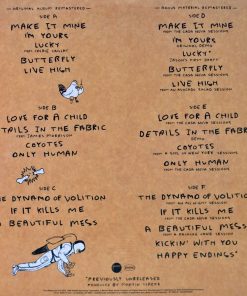 ORIGINAL ALBUM REMASTERED
SIDE A
MAKE IT MINE
I'M YOURS
LUCKY
FEAT. COLBIE CAILLAT
BUTTERFLY
LIVE HIGH
SIDE B
LOVE FOR A CHILD
DETAILS IN THE FABRIC
FEAT. JAMES MORRISON
COYOTES
ONLY HUMAN
SIDE C
THE DYNAMO OF VOLITION
IF IT KILLS ME
A BEAUTIFUL MESS
BONUS MATERIAL REMASTERED
SIDE D
MAKE IT MINE
FROM THE CASA NOVA SESSIONS
I'M YOURS
ORIGINAL DEMO
LUCKY
JASON'S FIRST DRAFT
BUTTERFLY
FROM THE CASA NOVA SESSIONS
LIVE HIGH
FROM THE AVOCADO SALAD SESSION
SIDE E
LOVE FOR A CHILD
FROM THE CASA NOVA SESSIONS
DETAILS IN THE FABRIC
DEMO
COYOTES
ONLY HUMAN
FROM THE CASA NOVA SESSIONS
SIDE F
THE DYNAMO OF VOLITION
IF IT KILLS ME
FROM THE CASA NOVA SESSIONS
A BEAUTIFUL MESS
KICKIN' WITH YOU
HAPPY ENDINGS*
*PREVIOUSLY UNRELEASED
PRODUCED BY MARTIN TEREFE